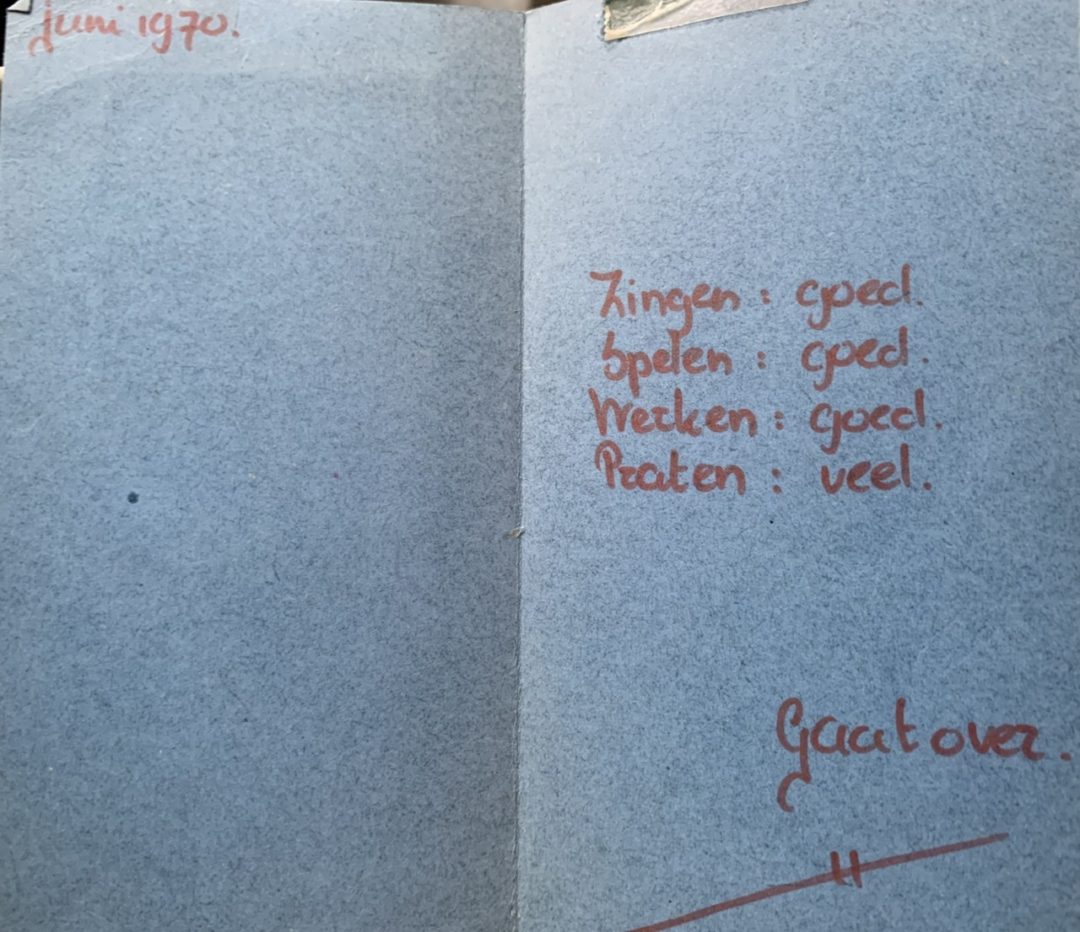 juni 1970.
Zingen : goed.
Spelen : goed.
Werken : goed.
Praten : veel.
Gaat over.